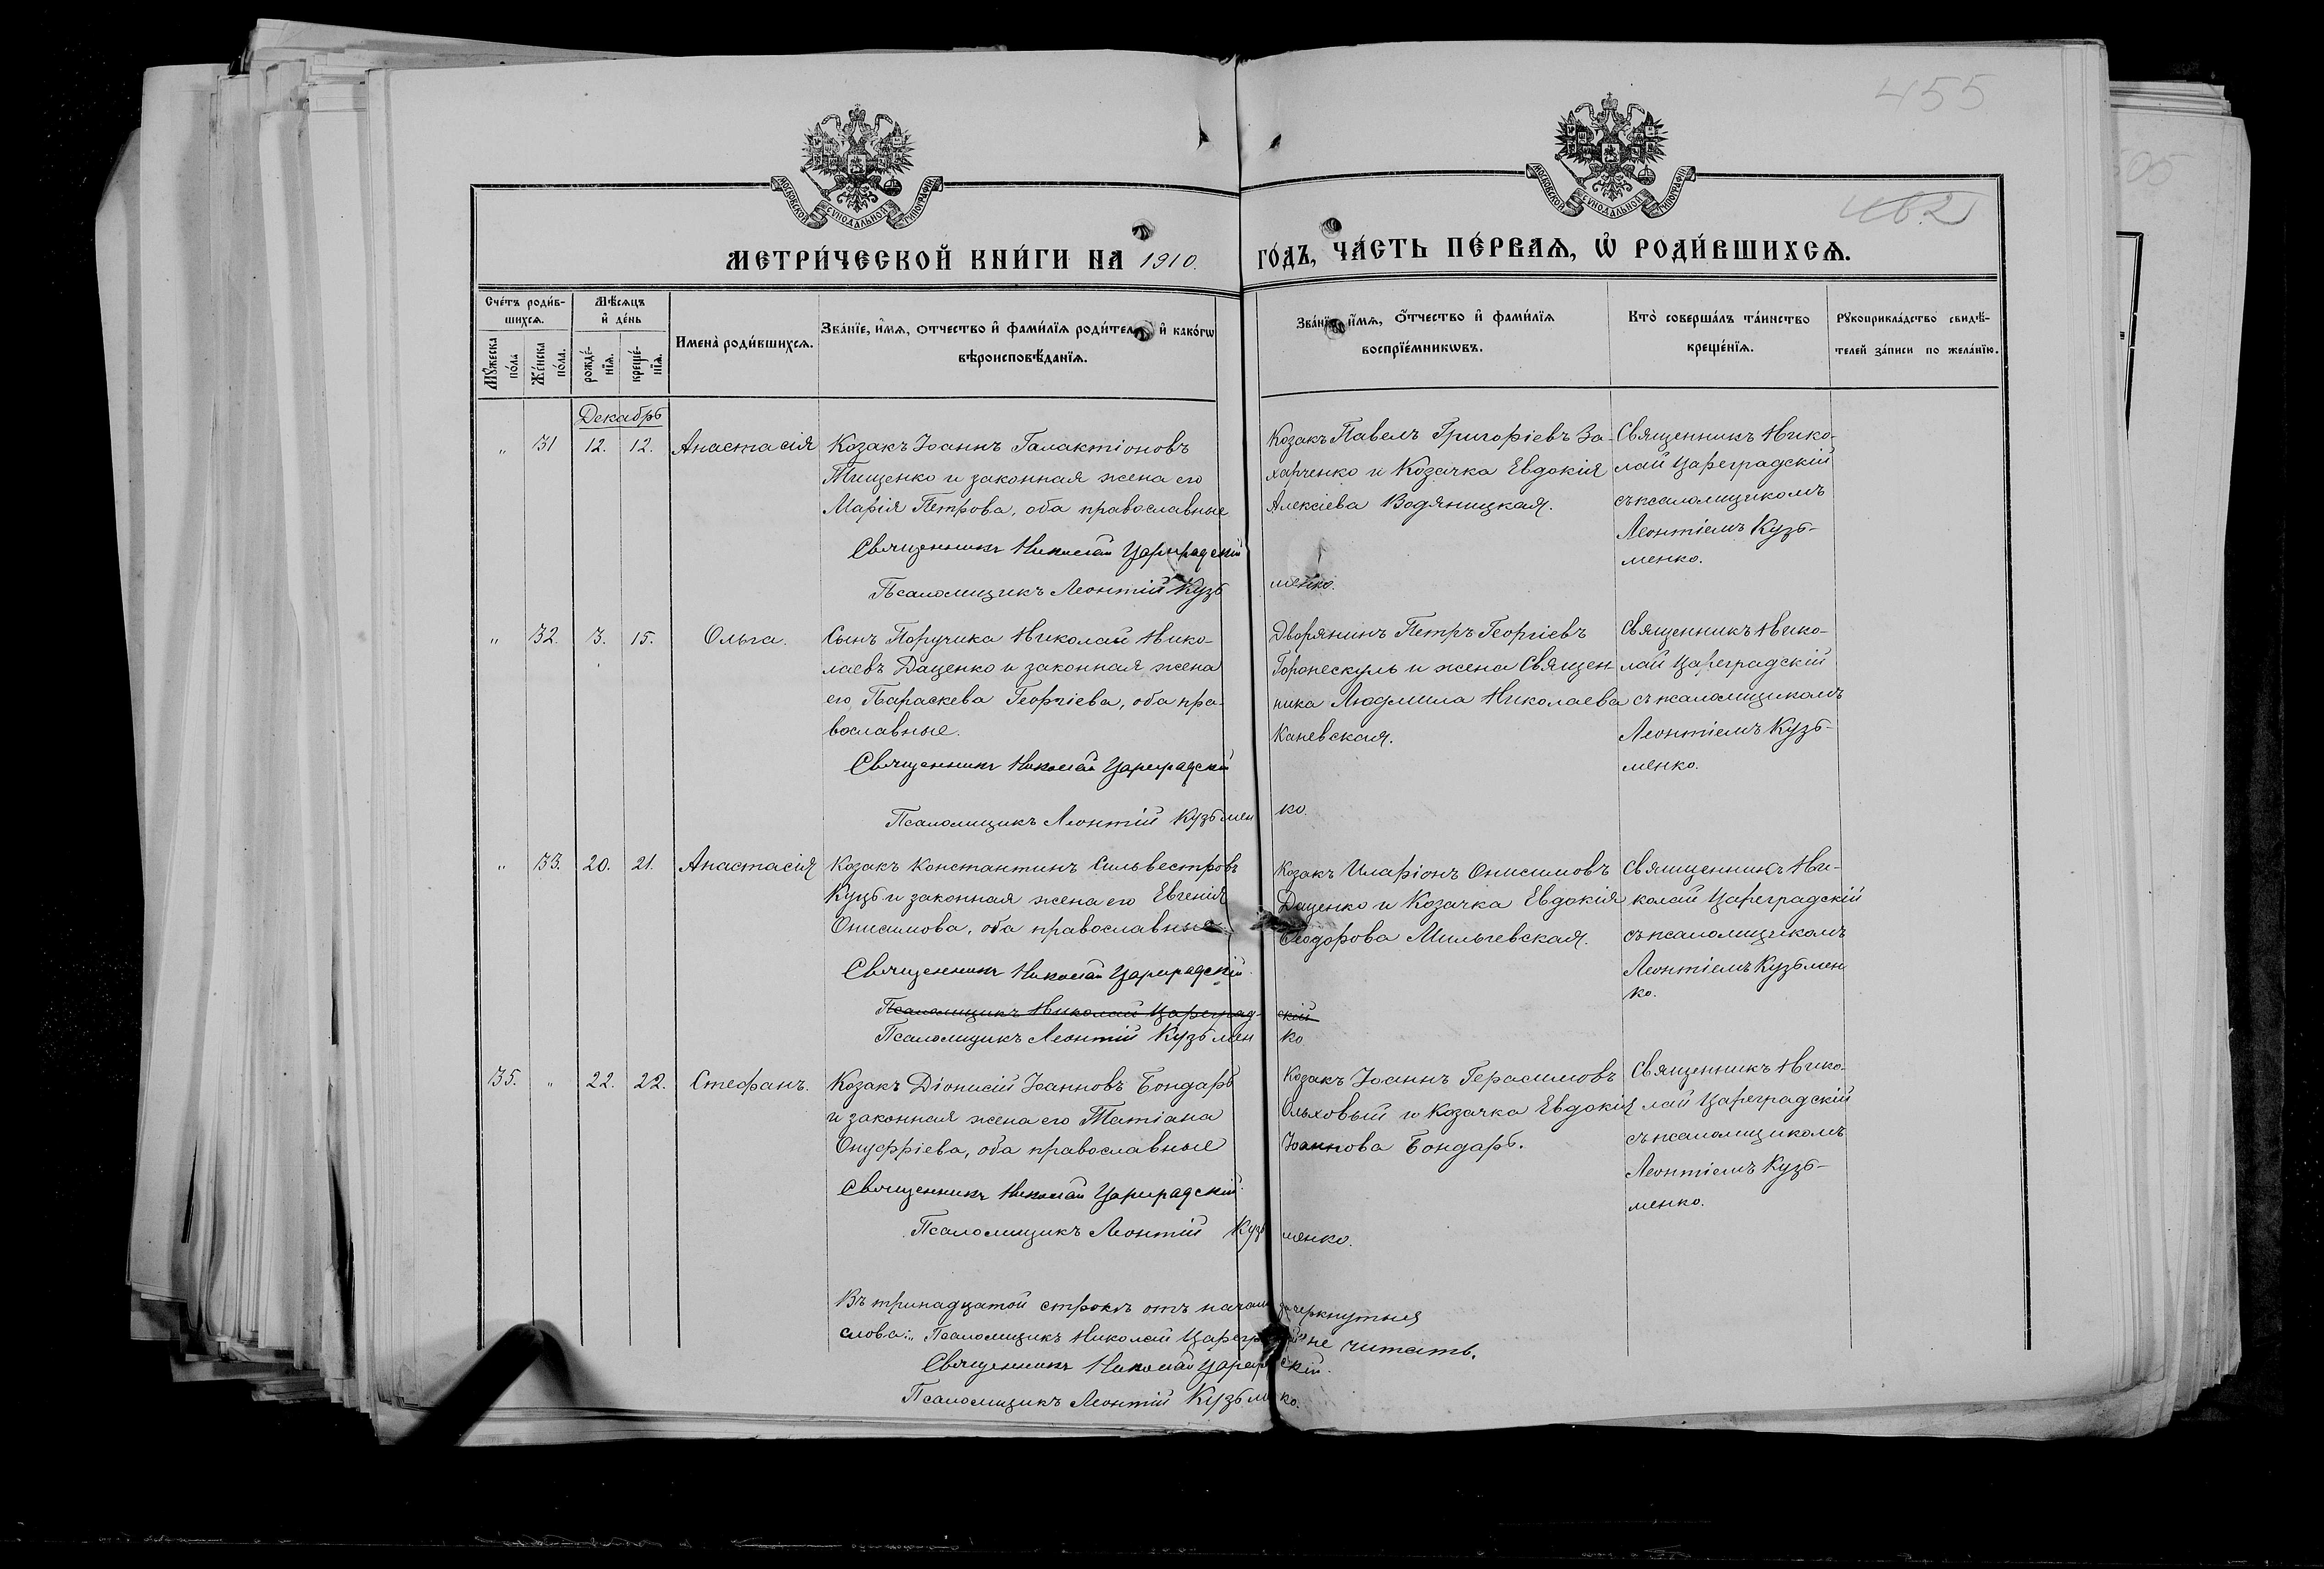 455
462
505
МОСКОВСКОЙ СѴНОДАЛЬНОЙ ТИПОГРАФІИ
МОСКОВСКОЙ СѴНОДАЛЬНОЙ ТИПОГРАФІИ
МЕТРИ́ЧЕСКОЙ КНИ́ГИ НА 1910. ГО́ДЪ, ЧА́СТЬ ПЕ́РВАѦ, Ѡ҆ РОДИ́ВШИХСѦ.
Сче́тъ роди́в-
шихсѧ.
Мꙋ́жеска по́ла
Же́нска по́ла.
Мѣ́сѧцъ и҆ де́нь
рожде́-нїѧ.
креще́-нїѧ.
И҆мена̀ роди́вшихсѧ.
Зва́нїе, и҆́мѧ, ѻ҆́тчество и҆ фами́лїѧ роди́тел и҆ како́гѡ
вѣроисповѣ́данїѧ.
Зва́нїе, и҆́мѧ, ѻ҆́тчество и҆ фами́лїѧ
воспрїе́мникѡвъ.
Кто̀ соверша́лъ та́инство
креще́нїѧ.
Рꙋкоприкла́дство свидѣ́-
телей за́писи по жела́нїю.
Декабрь
„ 31 12. 12. Анастасія
Козакъ Іоаннъ Галактіоновъ
Тищенко и законная жена его
Марія Петрова, оба православные
Священникъ Николай Цареградскій
Псаломщикъ Леонтій Кузьменко.
Козакъ Павелъ Григоріевъ За-
харченко и Козачка Евдокія
Алексіева Водяницкая.
Священникъ Нико-
лай Цареградскій
съ псаломщикомъ
Леонтіемъ Кузь-
менко.
„ 32. 3. 15. Ольга.
Сынъ Поручика Николай Нико-
лаевъ Даценко и законная жена
его Параскева Георгіева, оба пра-
вославные.
Священникъ Николай Цареградскій
Псаломщикъ Леонтій Кузьменко.
Дворянинъ Петръ Георгіевъ
Горонескуль и жена Священ-
ника Людмила Николаева
Каневская.
Священникъ Нико-
лай Цареградскій
съ псаломщикомъ
Леонтіемъ Кузь-
менко.
„ 33. 20. 21. Анастасія
Козакъ Константинъ Сильвестровъ
Куць и законная жена его Евгенія
Онисимова, оба православные
Священникъ Николай Цареградскій.
Псаломщикъ Николай Цареградскій
Псаломщикъ Леонтій Кузьменко
Козакъ Иларіонъ Онисимовъ
Даценко и Козачка Евдокія
Ѳеодорова Мильчевская.
Священникъ Ни-
колай Цареградскій
съ псаломщикомъ
Леонтіемъ Кузьмен
ко.
35. „ 22. 22. Стефанъ.
Козакъ Діонисій Іоанновъ Бондарь
и законная жена его Татіана
Онуфріева, оба православные
Священникъ Николай Цареградскій.
Псаломщикъ Леонтій Кузьменко.
Козакъ Іоаннъ Герасимовъ
Ольховый и Козачка Евдокія
Іоаннова Бондарь.
Священникъ Нико-
лай Цареградскій
съ псаломщикомъ
Леонтіемъ Кузь-
менко.
Въ тринадцатой строкѣ отъ начала зачеркнутыя
слова: „Псаломщикъ Николай Цареградскій" не читать.
Священникъ Николай Цареградскій.
Псаломщикъ Леонтій Кузьменко.